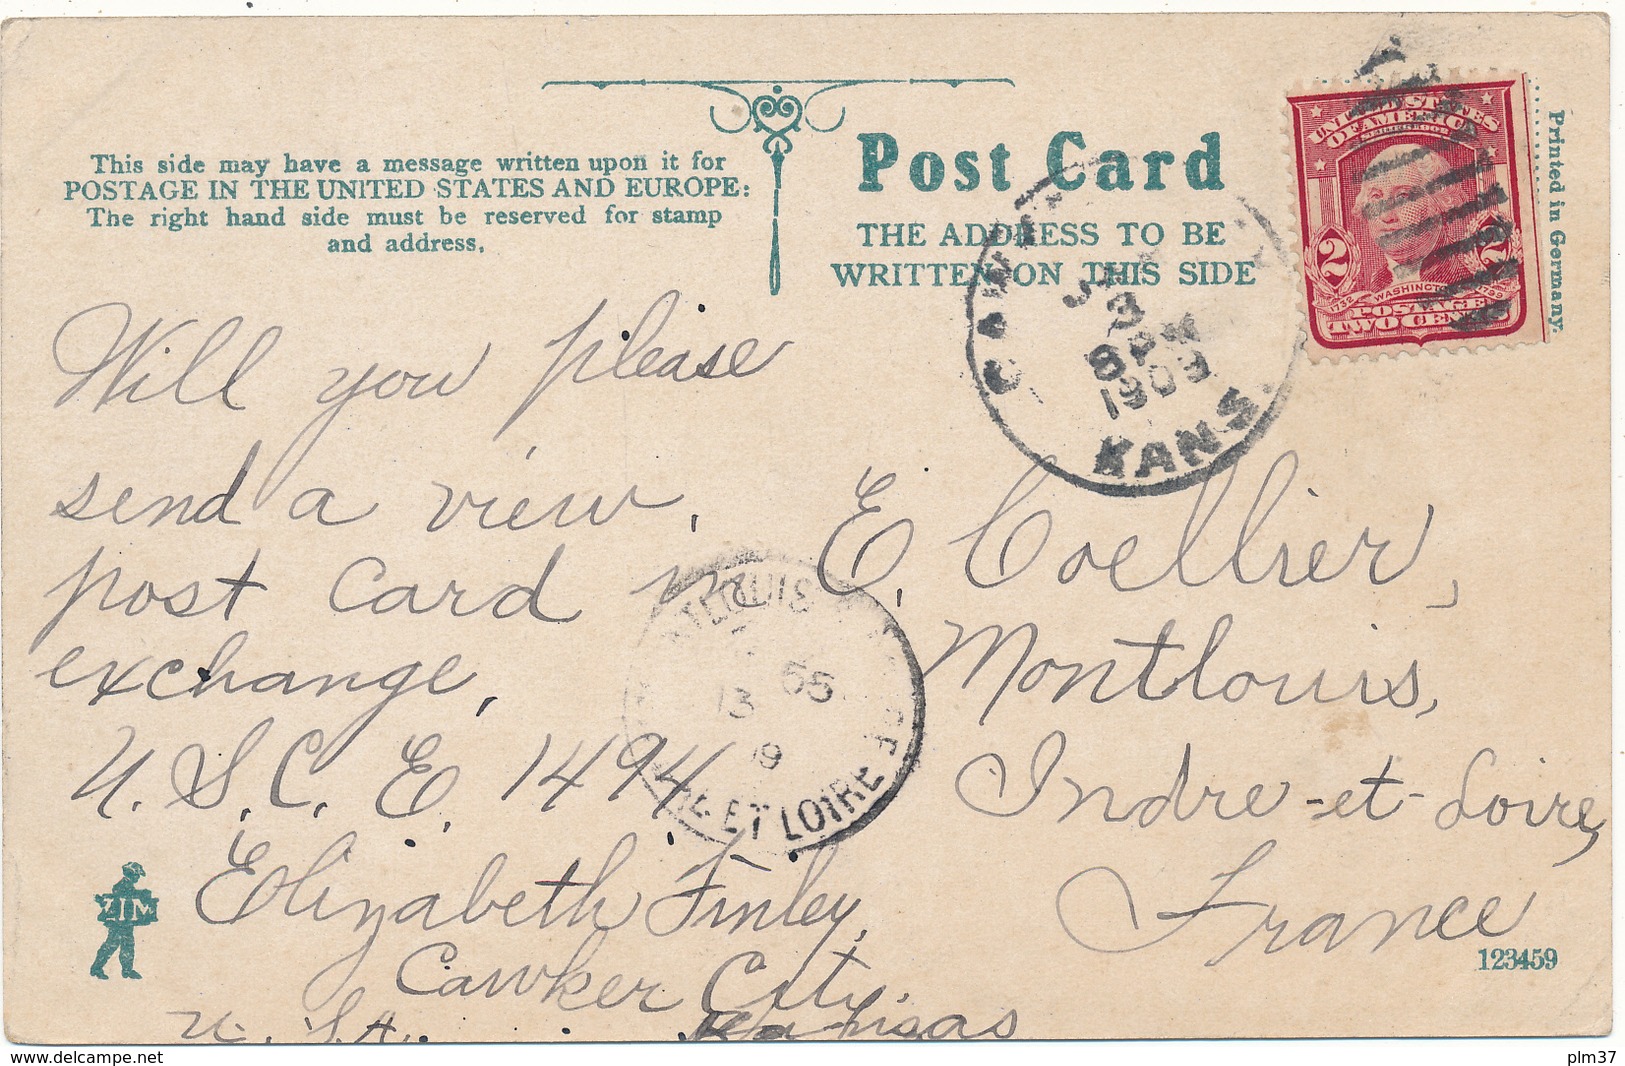 This side may have a message written upon it for
POSTAGE IN THE UNITED STATES AND EUROPE:
The right hand side must be reserved for stamp
and address.
Post Card
THE ADDRESS TO BE
WRITTEN ON THIS SIDE
UNITED STATES
OF AMERICA
SERIES 1902
2 2
1732 WASHINGTON 1799
POSTAGE
TWO CENTS
Printed in Germany.
8 PM
1909
KANS.
Will you please
send a view
post card in
exchange,
U.S.C.E. 1494
Elizabeth Finley,
Cawker City,
U.S.A. Kansas
E. Coellier,
Montlouis,
Indre-et-Loire,
France
13 55
9
ET LOIRE
ZIM
123459
delcampe.net
plm37